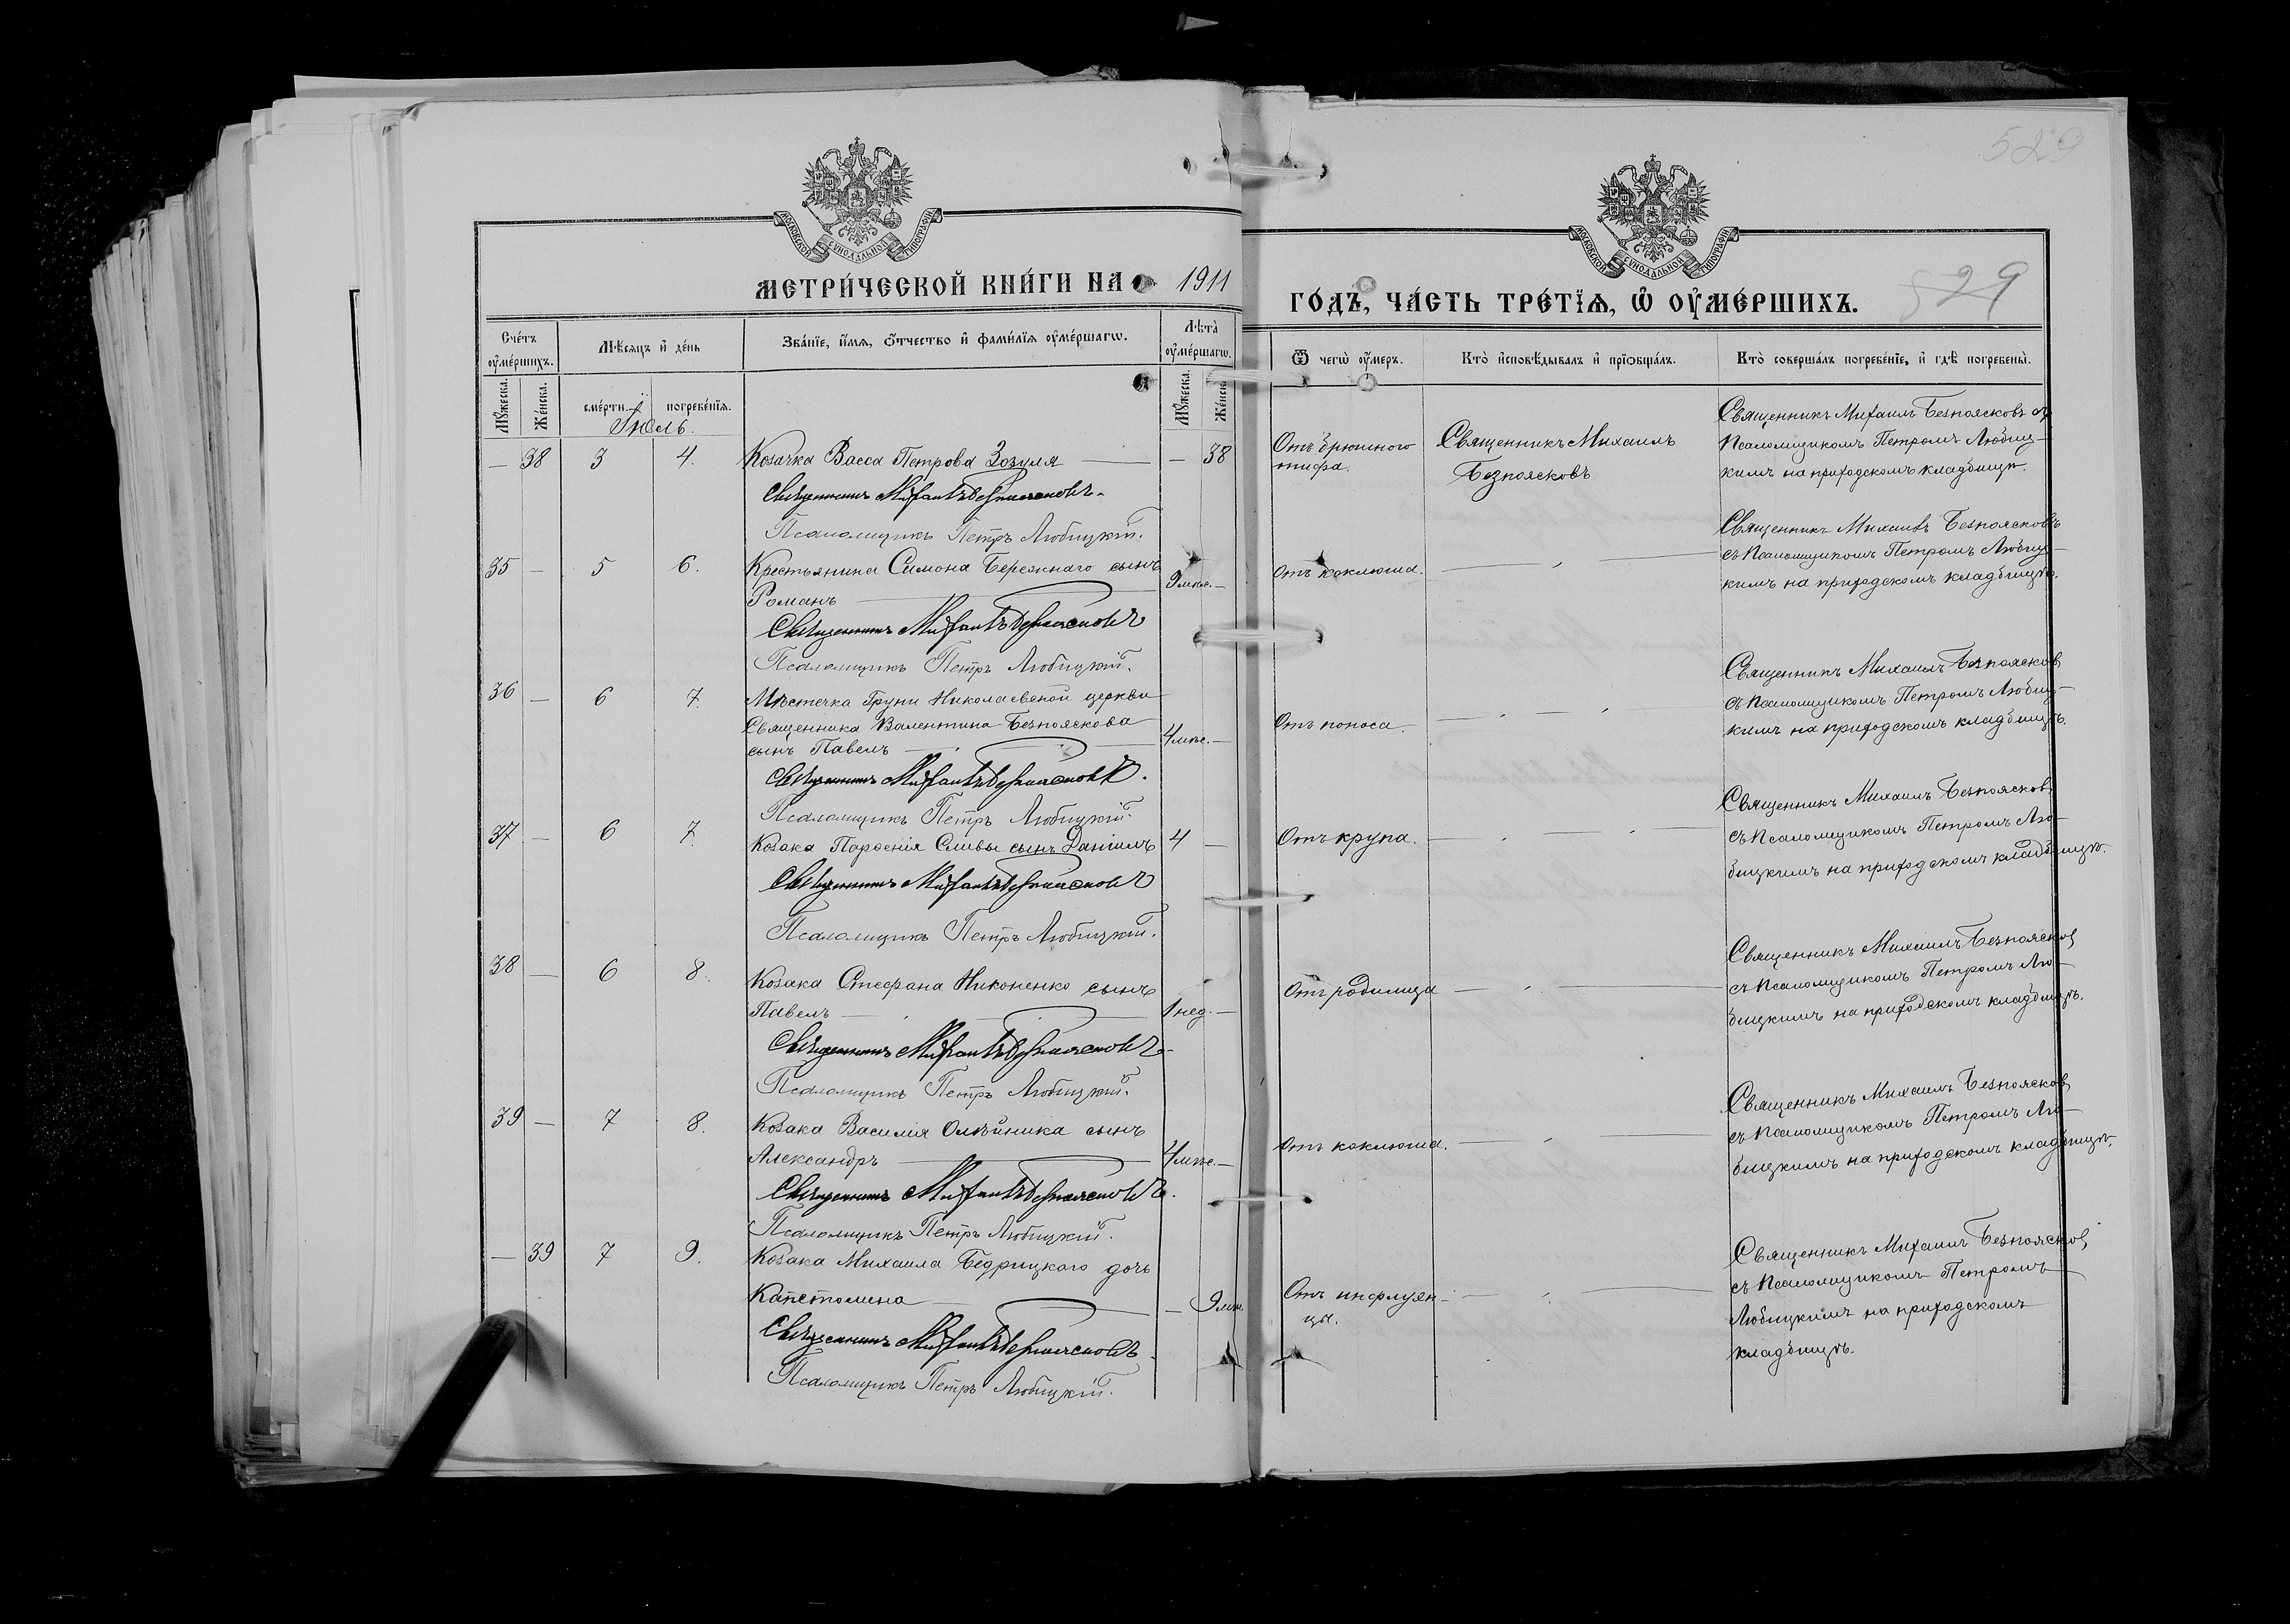 529
МОСКОВСКОЙ СѴНОДАЛЬНОЙ ТИПОГРАФІИ
МОСКОВСКОЙ СѴНОДАЛЬНОЙ ТИПОГРАФІИ
МЕТРИ́ЧЕСКОЙ КНИ́ГИ НА 1911
ГО́ДЪ, ЧА́СТЬ ТРЕ́ТЇѦ, Ѽ ОУ҆МЕ́РШИХЪ. 529
Сче́тъ оу҆ме́ршихъ.
Мѣ́сѧцъ и҆ де́нь
Зва́нїе, и҆́мѧ, ѻ҆́тчество и҆ фами́лїѧ оу҆ме́ршагѡ.
Лѣта̀ оу҆ме́ршагѡ.
Ѿ чегѡ̀ оу҆́меръ.
Кто̀ и҆сповѣ́дывалъ и҆ прїѡбща́лъ.
Кто̀ соверша́лъ погребе́нїе, и҆ гдѣ̀ погребены̀.
Мꙋ́жеска. Же́нска. сме́рти. погребе́нїѧ. Мꙋ́жеска. Же́нска.
Іюль.
— 38 3 4. Козачка Васса Петрова Зозуля — — 38
Священникъ Михаилъ Безпоясковъ
Псаломщикъ Петръ Любицкій.
Отъ брюшного
тифа.
Священникъ Михаилъ
Безпоясковъ
Священникъ Михаилъ Безпоясковъ съ
Псаломщикомъ Петромъ Любиц-
кимъ на приходскомъ кладбищѣ.
35 — 5 6. Крестьянина Симона Бережнаго сынъ
Романъ — 9 мѣс. —
Священникъ Михаилъ Безпоясковъ
Псаломщикъ Петръ Любицкій.
Отъ коклюша.
Священникъ Михаилъ Безпоясковъ
съ Псаломщикомъ Петромъ Любиц-
кимъ на приходскомъ кладбищѣ.
36 — 6 7. Мѣстечка Груни Николаевской церкви
Священника Валентина Безпояскова
сынъ Павелъ — 4 мѣс. —
Священникъ Михаилъ Безпоясковъ.
Псаломщикъ Петръ Любицкій.
Отъ поноса.
Священникъ Михаилъ Безпоясковъ
съ Псаломщикомъ Петромъ Любиц-
кимъ на приходскомъ кладбищѣ.
37 — 6 7. Козака Парѳенія Сливы сынъ Даніилъ 4 —
Священникъ Михаилъ Безпоясковъ
Псаломщикъ Петръ Любицкій.
Отъ крупа.
Священникъ Михаилъ Безпоясковъ
съ Псаломщикомъ Петромъ Лю-
бицкимъ на приходскомъ кладбищѣ.
38 — 6 8. Козака Стефана Никоненко сынъ
Павелъ — 1 нед. —
Священникъ Михаилъ Безпоясковъ
Псаломщикъ Петръ Любицкій.
Отъ родимца
Священникъ Михаилъ Безпоясковъ
съ Псаломщикомъ Петромъ Лю-
бицкимъ на приходскомъ кладбищѣ.
39 — 7 8. Козака Василія Олѣйника сынъ
Александръ — 4 мѣс. —
Священникъ Михаилъ Безпоясковъ.
Псаломщикъ Петръ Любицкій.
Отъ коклюша.
Священникъ Михаилъ Безпоясковъ
съ Псаломщикомъ Петромъ Лю-
бицкимъ на приходскомъ кладбищѣ.
— 39 7 9. Козака Михаила Бедрицкого дочь
Капетолина — — 9 мѣс.
Священникъ Михаилъ Безпоясковъ.
Псаломщикъ Петръ Любицкій.
Отъ инфлуэн-
цы.
Священникъ Михаилъ Безпоясковъ
съ Псаломщикомъ Петромъ
Любицкимъ на приходскомъ
кладбищѣ.